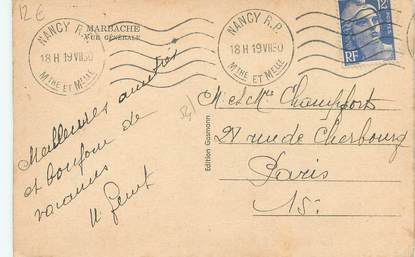 12€
MARBACHE
VUE GÉNÉRALE
NANCY R.P.
18H 19 VII 50
MTHE ET MELLE
NANCY R.P.
18H 19 VII 50
MTHE ET MELLE
12F
RF
Meilleures amitiés
et bonjour de
vacances
Edition Gasmann
M. et Mme Champfort
27 rue de Cherbourg
Paris
15e